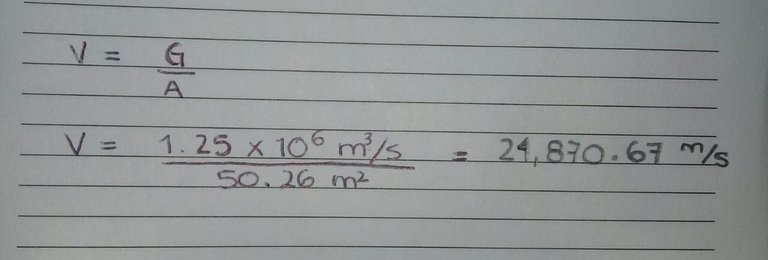 V = G/A
V = 1.25 x 10⁶ m³/s / 50.26 m² = 24,870.67 m/s